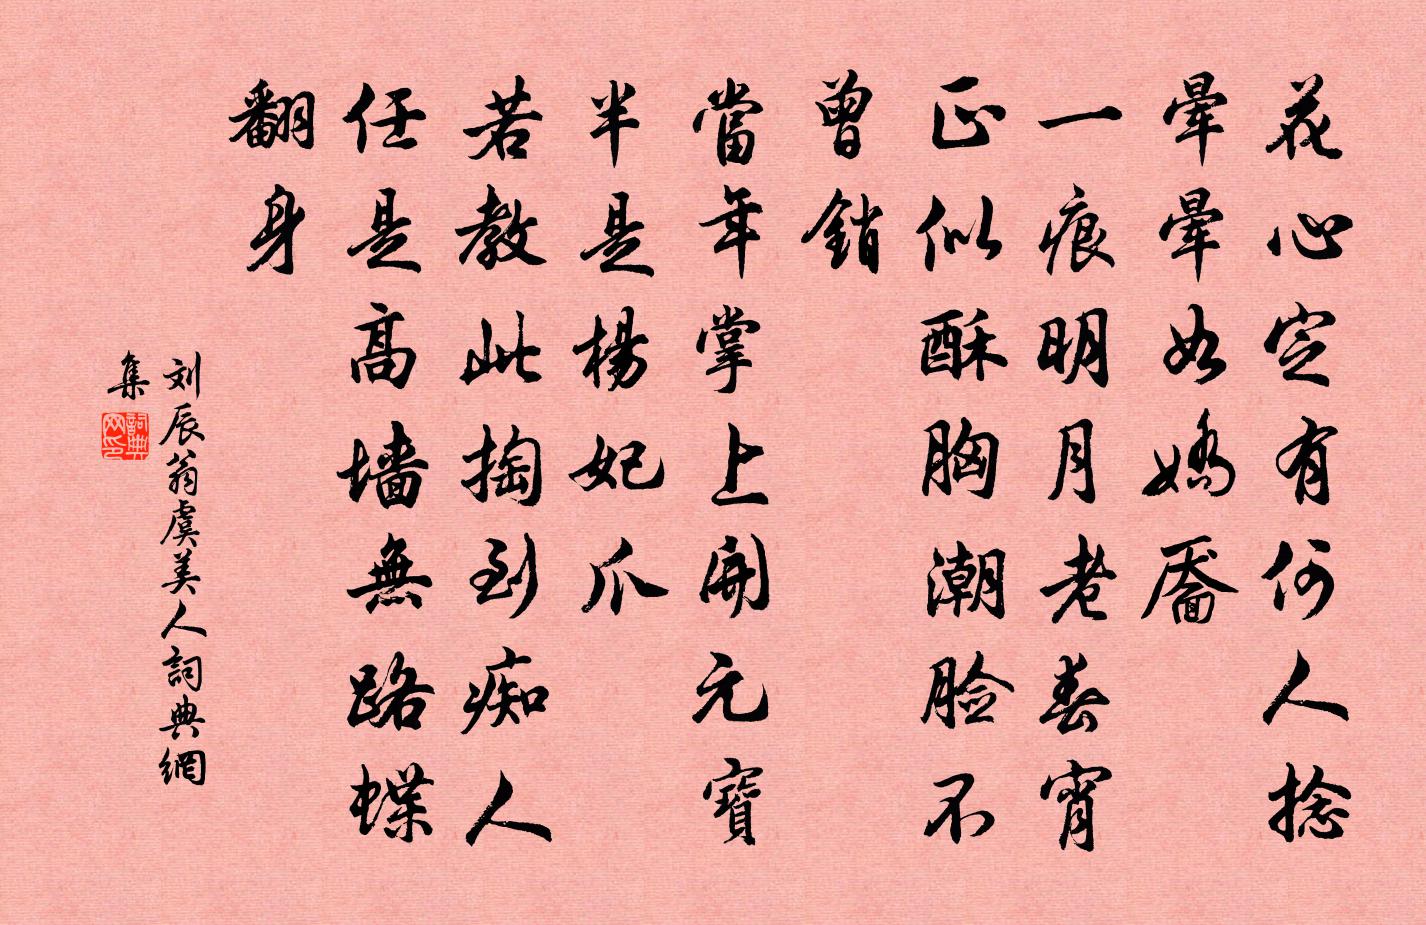 花心定有何人捻
暈暈如嬌靨
一痕明月老春宵
正似酥胸潮脸不
曾銷
當年掌上開元寶
半是楊妃爪
若教此掏到痴人
任是高墻無路蝶
翻身
刘辰翁虞美人詞典網
集
詞典
网印